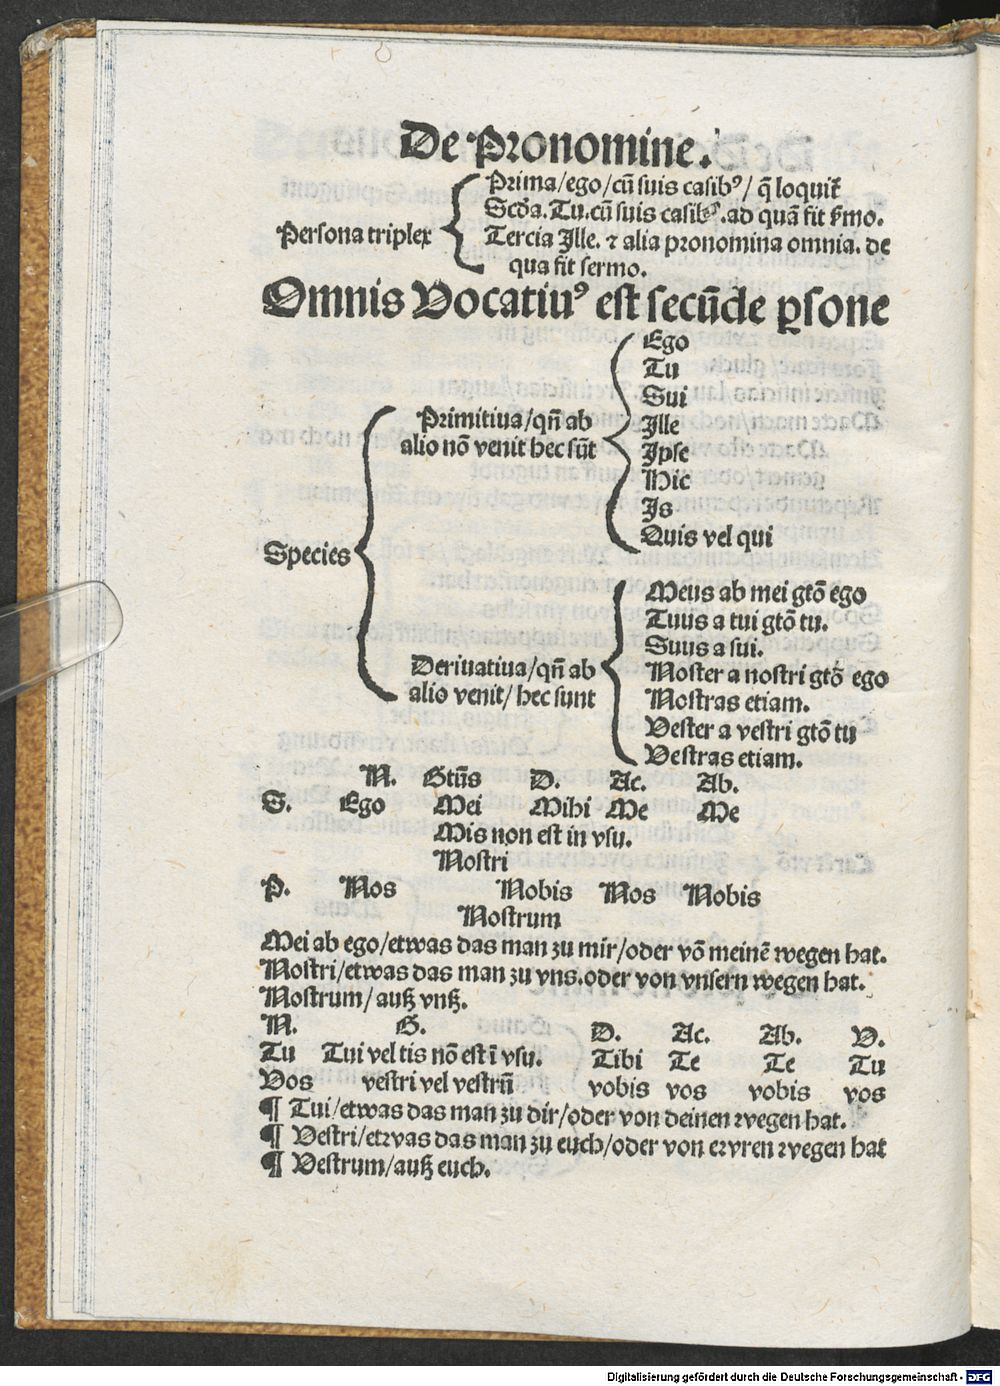 De Pronomine.
Prima/ego/cū suis casibꝰ/ q̄ loquit᷑
Scd̄a. Tu. cū suis casibꝰ. ad quā fit ẜmo.
Persona triplex
Tercia Jlle. ⁊ alia pronomina omnia. de
qua fit sermo.
Omnis Vocatiuꝰ est secūde ꝑsone
Ego
Tu
Sui
Primitiua/qn̄ ab
Jlle
alio nō venit hec sūt
Jpse
Hic
Js
Quis vel qui
Species
Meus ab mei gtō ego
Tuus a tui gtō tu.
Suus a sui.
Deriuatiua/qn̄ ab
Noster a nostri gtō ego
alio venit/ hec sunt
Nostras etiam.
Vester a vestri gtō tu
Vestras etiam.
N. Gtūs D. Ac. Ab.
S. Ego Mei Mihi Me Me
Mis non est in vsu.
Nostri
P. Nos Nobis Nos Nobis
Nostrum
Mei ab ego/etwas das man zu mir/oder vō meinē wegen hat.
Nostri/etwas das man zu vns.oder von vnsern wegen hat.
Nostrum/ auß vnß.
N. G. D. Ac. Ab. V.
Tu Tui vel tis nō est ī vsu. Tibi Te Te Tu
Vos vestri vel vestrū vobis vos vobis vos
¶ Tui/etwas das man zu dir/oder von deinen wegen hat.
¶ Vestri/etwas das man zu euch/oder von ewren wegen hat
¶ Vestrum/auß euch.
Digitalisierung gefördert durch die Deutsche Forschungsgemeinschaft - DFG